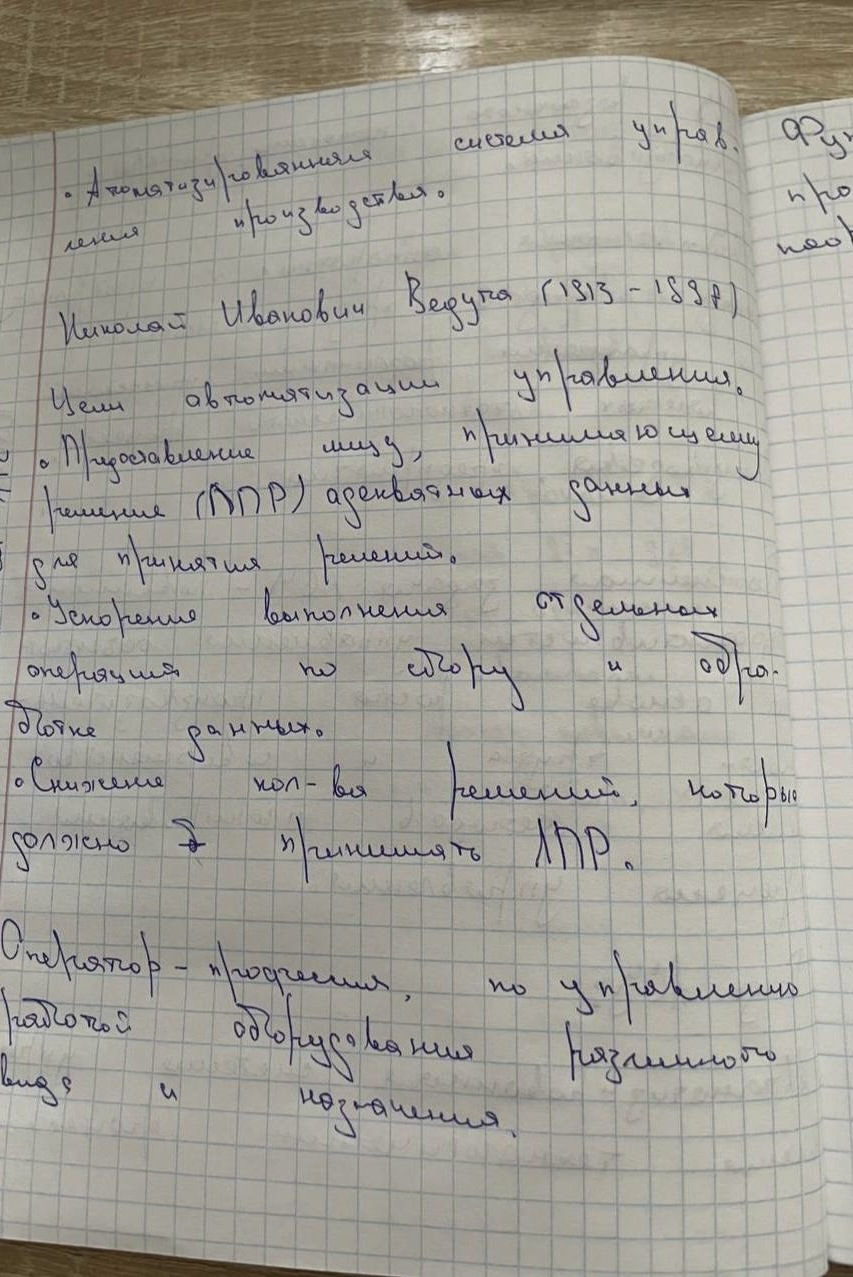 • Атоматизированная система управ-
ления производства.
Николай Иванович Ведута (1913 - 1998)
Цели автоматизации управления.
• Предоставление лицу, принимающему
решение (ЛПР) адекватных данных
для принятия решений.
• Ускорение выполнения отдельных
операций по сбору и обра-
ботке данных.
• Снижение кол-ва решений, которые
должно принимать ЛПР.
Оператор - профессия, по управлению
работой оборудования различного
вида и назначения.
Фун
про